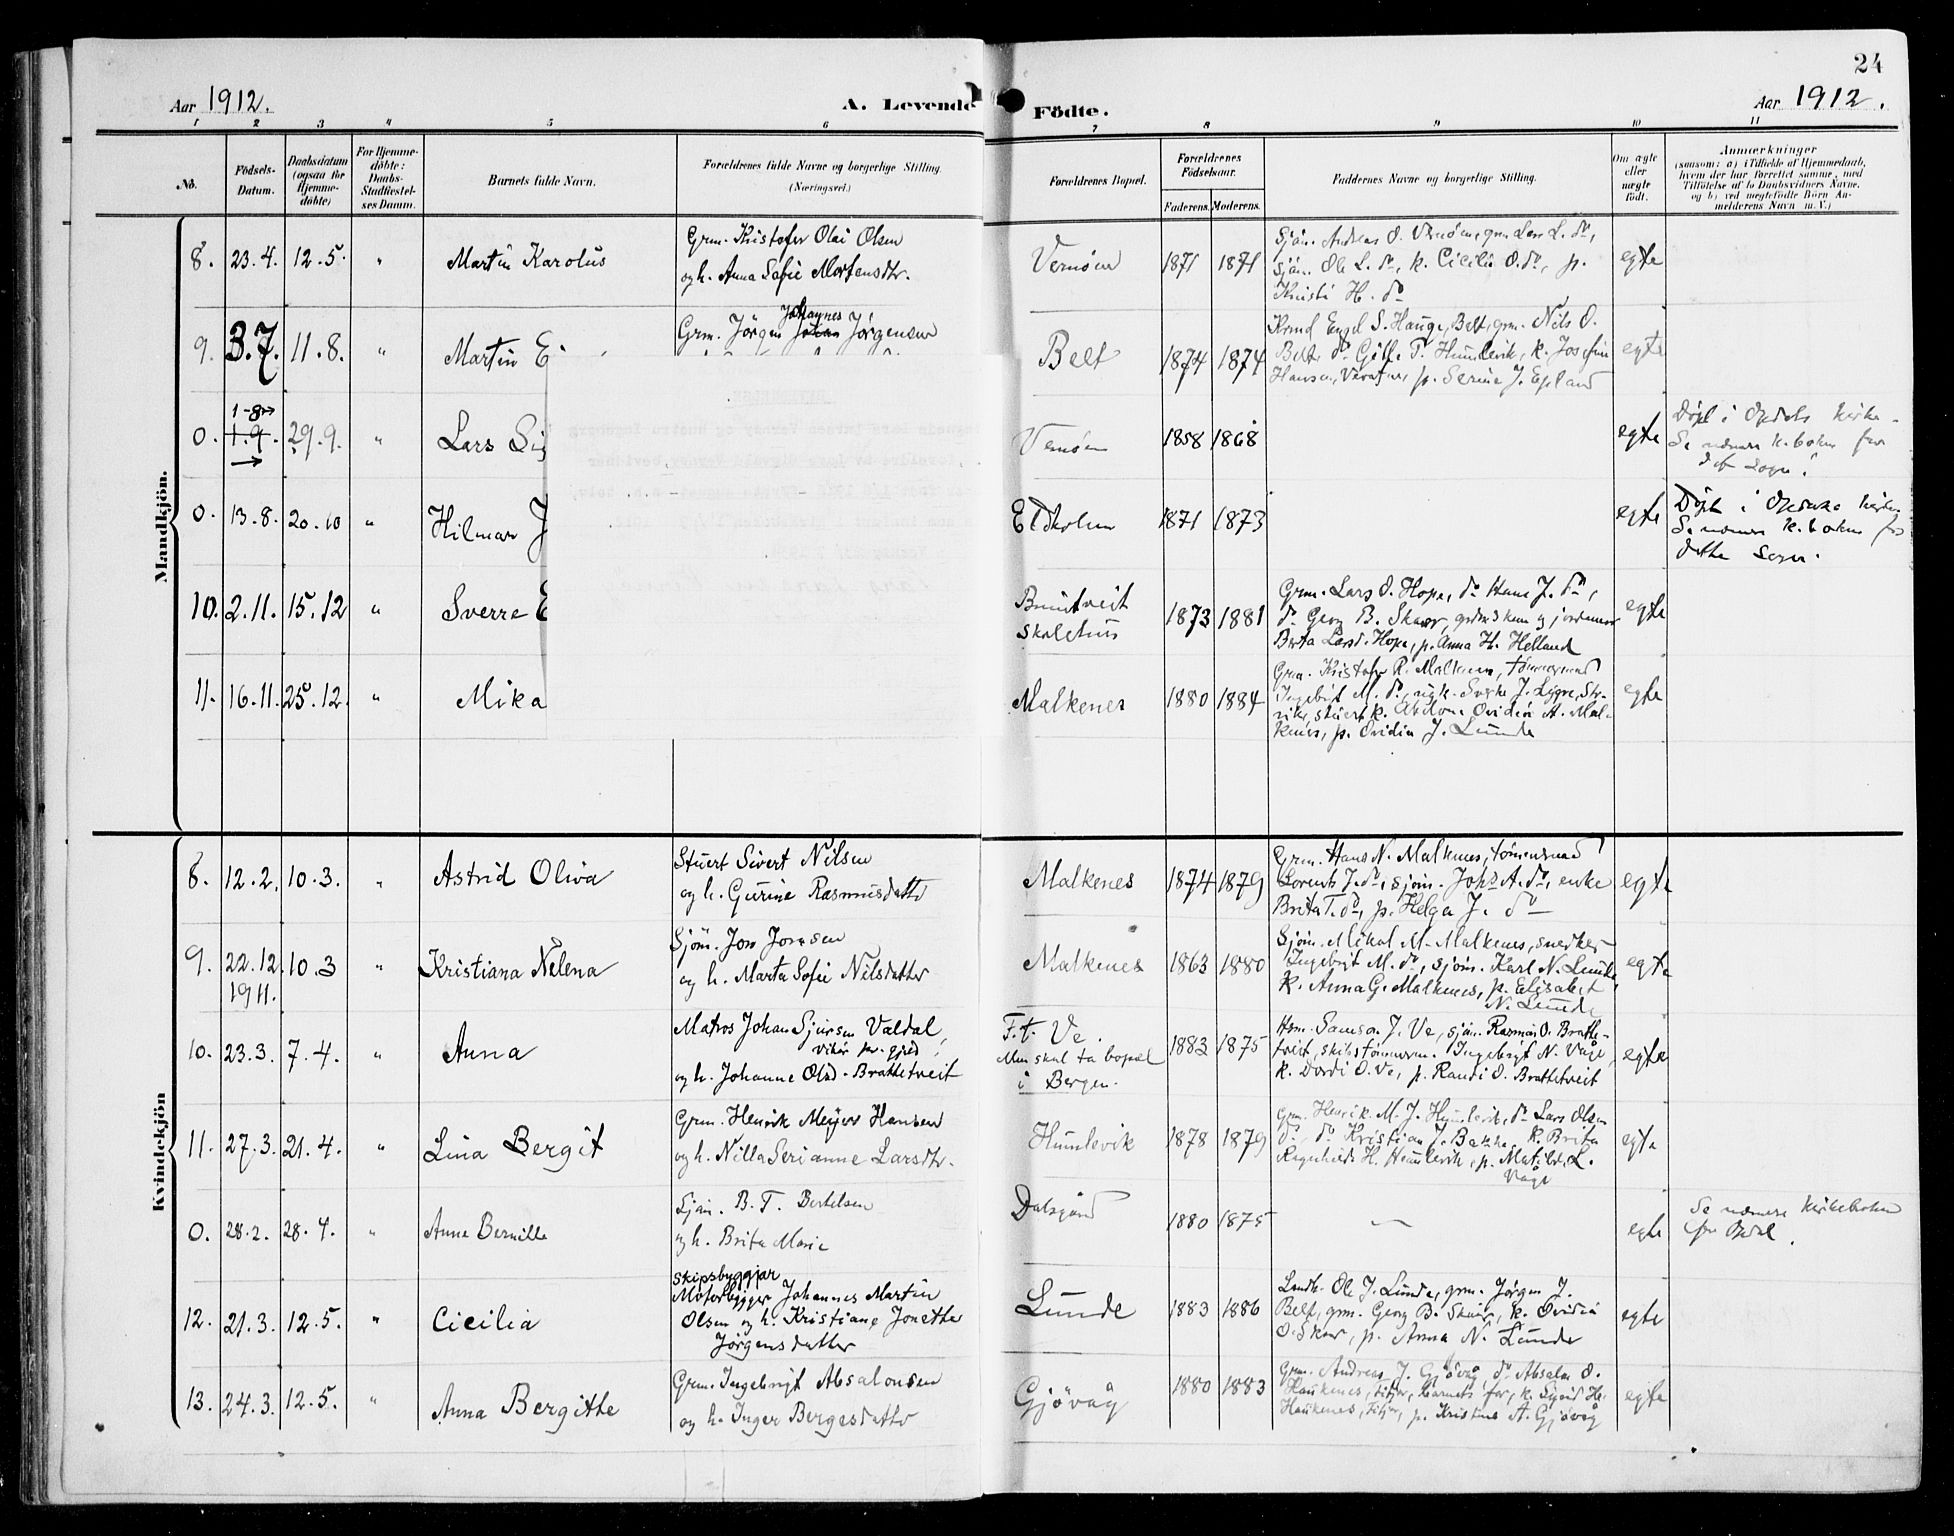 24
Aar 1912.
A. Levende Födte.
Aar 1912.
1 2 3 4 5 6 7 8 9 10 11
No.
Födsels-Datum.
Daabsdatum (ogsaa for Hjemme-döbte)
For Hjemme-döbte: Daabs-Stadfæstel-ses Datum.
Barnets fulde Navn.
Forældrenes fulde Navne og borgerlige Stilling.
(Næringsvei.)
Forældrenes Bopæl.
Forældrenes Födselsaar.
Faderens. Moderens.
Faddernes Navne og borgerlige Stilling.
Om ægte eller uægte födt.
Anmærkninger
(saasom: a) i Tilfælde af Hjemmedaab,
hvem der har forrettet samme, med
Tilföielse af to Daabsvidners Navne,
og b) ved uægtefödte Börn An-
melderens Navn m. V.)
Mandkjön.
8. 23.4. 12.5. " Martin Karolus
Grm. Kristofer Olai Olsen
og h. Anna Sofie Mortensdtr.
Vernøen 1871 1871
Sjöm. Andreas O. Vernøen, grm. Lars L. do,
sjöm. Ole L. do, k. Cicilie O. do, p.
Kristi H. do
egte
9. 3.7. 11.8. " Martin E
Johannes
Grm. Jörgen Johan Jörgensen
Belt 1874 1874
Belt, grm. Nils O.
Belt, do Humlevik, k. Josefine
Hansen, p. Serine J. Epland
egte
1-8
0. 1.9. 29.9. " Lars Sig
Vernøen 1858 1868 egte
Døpt i Opdals kirke.
Se nærmere k.boken for
det sogn.
0. 13.8. 20.10 " Hilmar J
Eldholmen 1871 1873 egte
Døpt i Opdals kirke.
Se nærmere k.boken for
dette sogn.
10. 2.11. 15.12 " Sverre E
Bruntveit
skolehus
1873 1881
Grm. Lars O. Hope, do Hans J. do,
do Georg B. Skaar, grdmdskone og jordemor
Berta Larsd. Hope, p. Anna H. Helland
egte
11. 16.11. 25.12. " Mika
Malkenes 1880 1884
Grm. Kristofer R. Malkenes, tömmermand
Ingebrit M. do, J. Lygre,
k. Ovidia A. Mal-
kenes, p. Ovidia J. Lunde
egte
Kvindekjön
8. 12.2. 10.3. " Astrid Oliva
Stuert Sivert Nilsen
og h. Gurine Rasmusdatter
Malkenes 1874 1879
Grm. Hans N. Malkenes, tömermand
Lorents J. do, sjöm. Johs A. do, enke
Brita T. do, p. Helga J. do
egte
9. 22.12. 10.3 " Kristiana Nelena
1911.
Sjöm. Jon Jonsen
og h. Marta Sofie Nilsdatter
Malkenes 1863 1880
Sjöm. Mikal M. Malkenes, snedker
Ingebrigt M. do, sjöm. Karl N. Lunde,
k. Anna G. Malkenes, p. Elisabet
N. Lunde
egte
10. 23.3. 7.4. " Anna
Matros Johan Sjursen Valdal,
og h. Johanne Olsd. Brattetveit
F.t. Ve.
Men skal ta bopæl
i Bergen.
1883 1875
Hsm. Samson J. Ve, sjöm. Rasmus O. Bratte-
tveit, skibstömmerm. Ingebrigt N. Våge,
k. Dordi O. Ve, p. Randi O. Brattetveit
egte
11. 27.3. 21.4. " Lina Bergit
Grm. Henrik Meyer Hansen
og h. Nilla Serianne Larsdtr.
Humlevik 1878 1879
Grm. Henrik M. J. Humlevik, do Lars Olsen
do, do Kristian J. Bakke, k. Brita
Ragnhilde H. Humlevik, p. Matilde L.
Våge
egte
0. 28.2. 28.4. " Anna Bernille
Sjöm. B. T. Bertelsen
og h. Brita Marie
Dalsgård 1880 1875 — egte
Se nærmere kirkeboken
for Opdal.
12. 21.3. 12.5. " Cicilia
Skipsbyggjar
Motorbygger Johannes Martin
Olsen og h. Kristiane Jonette
Jörgensdatter
Lunde 1883 1886
Landh. Ole J. Lunde, grm. Jørgen J.
Belt, grm. Georg B. Skaar, k. Ovidia
O. Skaar, p. Anna N. Lunde
egte
13. 24.3. 12.5. " Anna Bergitte
Grm. Ingebrigt Absalonsen
og h. Inger Bergesdatter
Gjövåg 1880 1883
Grm. Andreas J. Gjövåg, do Absalon O.
Haukenes, Fitjar, barnets far, k. Sigrid H.
Haukenes, Fitjar, p. Kristine A. Gjövåg
egte